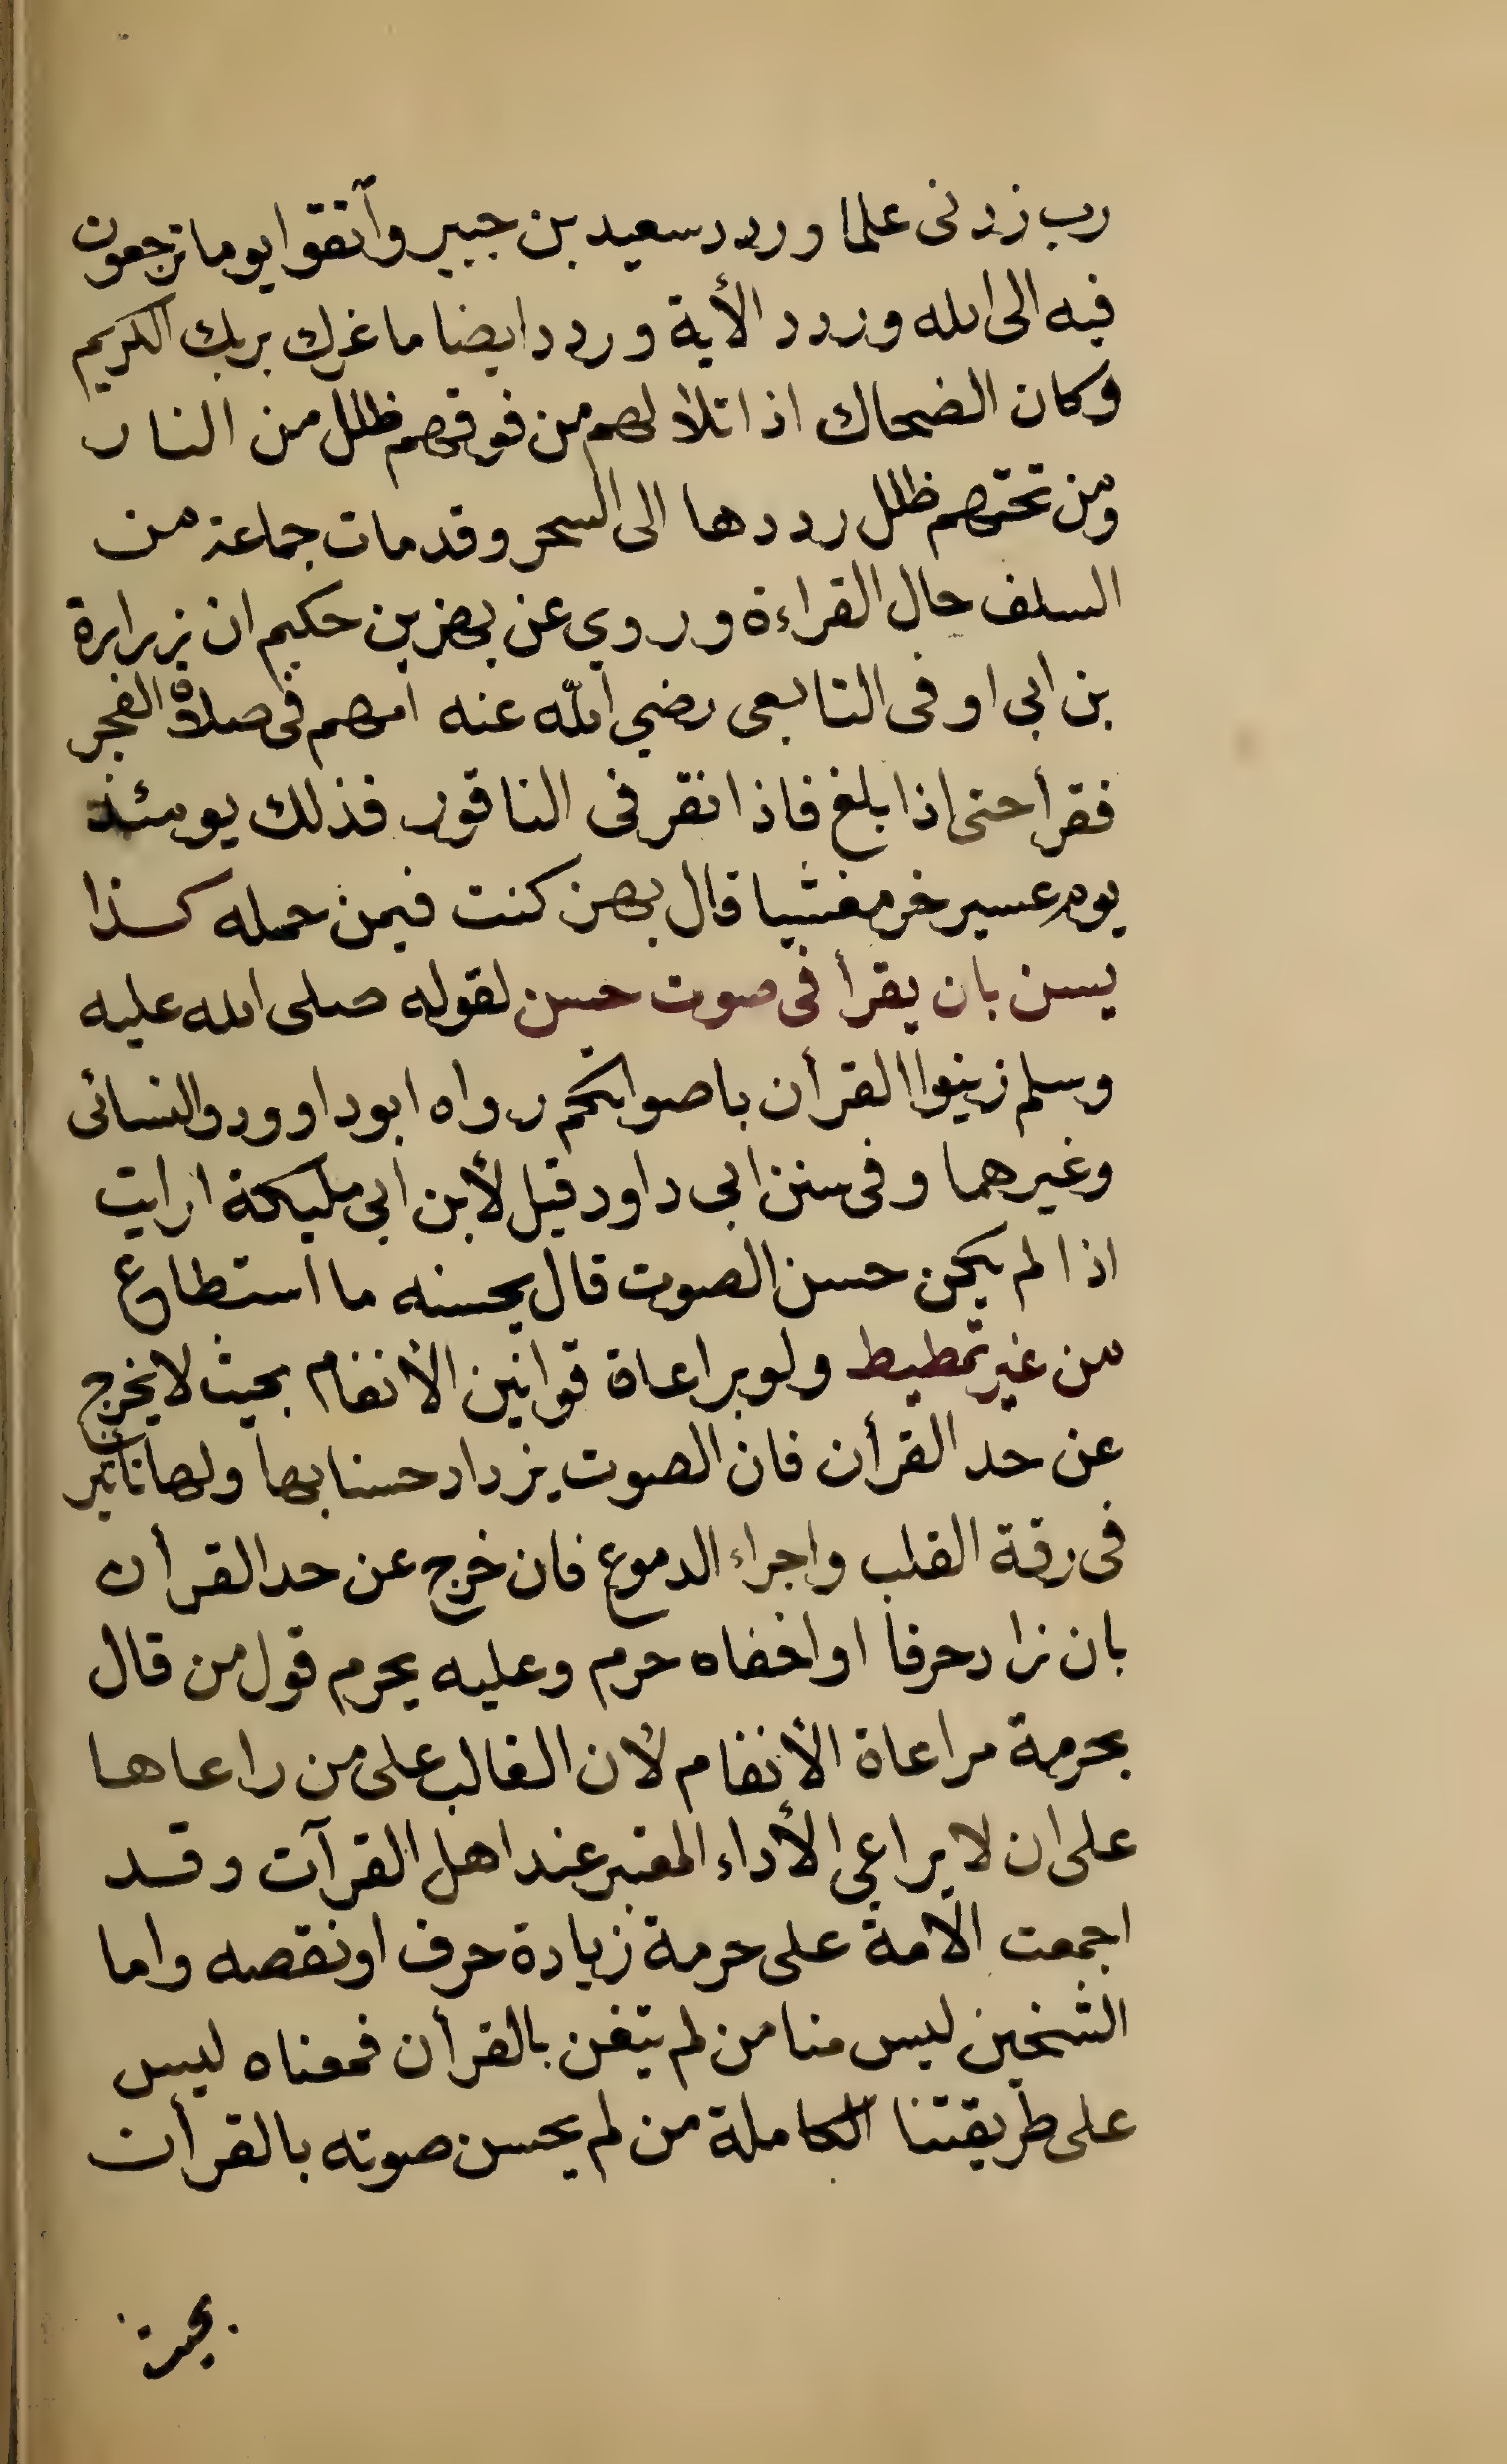 رب زدنى علما وردد سعيد بن جبير وأتقوا يوما ترجعون
فيه الى الله وردد الأية وردد ايضا ما غرك بربك الكريم
وكان الضحاك اذا تلا لهم من فوقهم ظلل من النار
ومن تحتهم ظلل رددها الى السحر وقد مات جماعة من
السلف حال القراءة وروي عن بهز بن حكيم ان زرارة
بن ابى اوفى التابعى رضي الله عنه امهم فى صلاة الفجر
فقرأ حتى اذا بلغ فاذا نقر فى الناقور فذلك يومئذ
يوم عسير خر مغشيا قال بهز كنت فيمن حمله كذا
يسن بان يقرأ فى صوت حسن لقوله صلى الله عليه
وسلم زينوا القرأن باصواتكم رواه ابوداوود والنسائى
وغيرهما وفى سنن ابى داود قيل لأبن ابى مليكة ارايت
اذا لم يكن حسن الصوت قال يحسنه ما استطاع
من غير تمطيط ولو براعاة قوانين الأنغام بحيث لا يخرج
عن حد القرأن فان الصوت يزداد حسنا بها ولها تأثير
فى رقة القلب واجراء الدموع فان خرج عن حد القرأن
بان زاد حرفا او اخفاه حرم وعليه يحرم قول من قال
بحرمة مراعاة الأنغام لأن الغالب على من راعاها
على ان لا يراعي الأداء المعتبر عند اهل القرآت وقد
اجمعت الأمة على حرمة زيادة حرف او نقصه واما
الشخين ليس منا من لم يتغن بالقرأن فمعناه ليس
على طريقتنا الكاملة من لم يحسن صوته بالقرأن